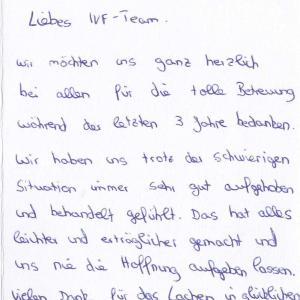 Liebes IVF-Team.
wir möchten uns ganz herzlich
bei allen für die tolle Betreuung
während der letzten 3 Jahre bedanken.
Wir haben uns trotz der schwierigen
Situation immer sehr gut aufgehoben
und behandelt gefühlt. Das hat alles
leichter und erträglicher gemacht und
uns nie die Hoffnung aufgeben lassen.
vielen Dank für das Lachen in glücklichen